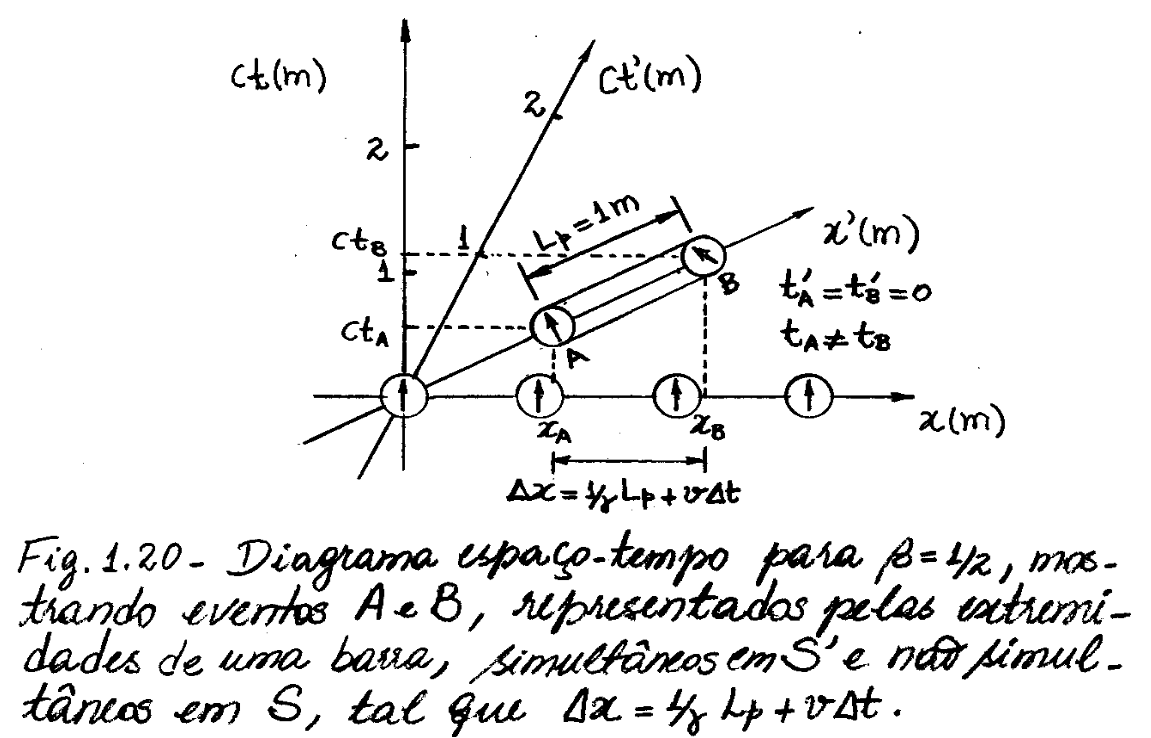 ct(m)
ct'(m)
2
2
Lp=1m
x'(m)
ctB
1
1
B
t'A=t'B=0
ctA
A
tA≠tB
xA
xB
x(m)
Δx=1/γ Lp+vΔt
Fig. 1.20- Diagrama espaço-tempo para β=1/2, mos-
trando eventos A e B, representados pelas extremi-
dades de uma barra, simultâneos em S' e não simul-
tâneos em S, tal que Δx = 1/γ Lp + vΔt.